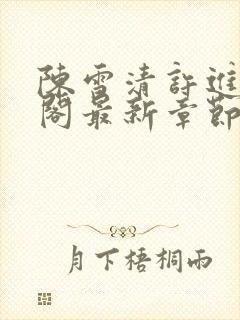 陳雪清許進
閣最新章節
月下梧桐雨